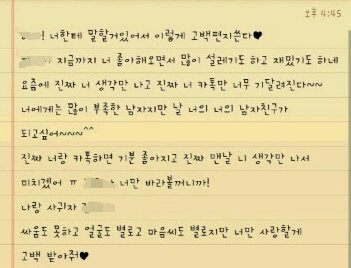 오후 4:45
! 너한테 말할거있어서 이렇게 고백편지쓴다♥
지금까지 너 좋아해오면서 많이 설레기도 하고 재밌기도 하네
요즘에 진짜 너 생각만 나고 진짜 너 카톡만 너무 기달려진다~~
너에게는 많이 부족한 남자지만 날 너의 너의 남자친구가
되고싶어~~~^^
진짜 너랑 카톡하면 기분 좋아지고 진짜 맨날 니 생각만 나서
미치겠어 ㅠ 너만 바라볼꺼니까!
나랑 사귀자
싸움도 못하고 얼굴도 별로고 마음씨도 별로지만 너만 사랑할게
고백 받아줘♥